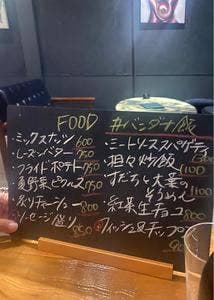 FOOD
・ミックスナッツ 600
・レーズンバター 750
・フライドポテト 750
・夏野菜ピクルス 750
・炙りチャーシュー 800
・ソーセージ盛り
#バンダナ飯
・ミートソーススパゲティ
・担々炒飯 1100
・すだちと大葉の
そうめん
・紅茶生チョコ 800
フィッシュ&チップス